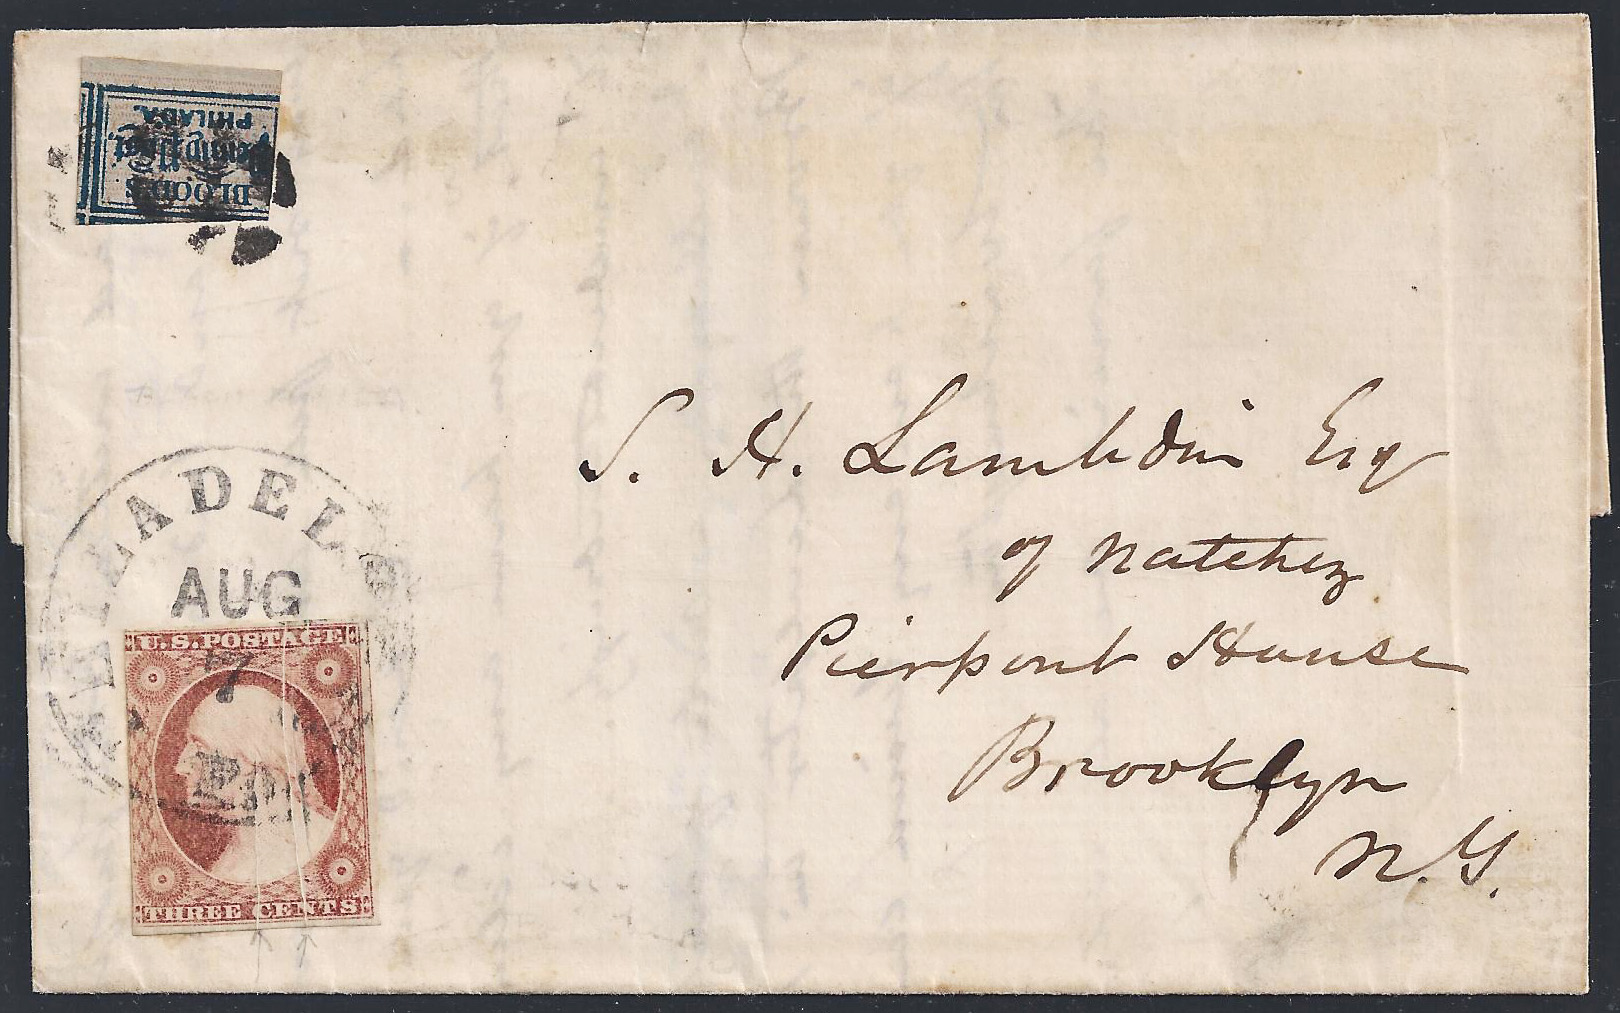 BLOOD'S
Penny Post,
PHILADA.
PHILADELPHIA
AUG
7
U.S. POSTAGE
THREE CENTS
S. H. Lambdin Esq
of Natchez
Pierpont House
Brooklyn
N.Y.